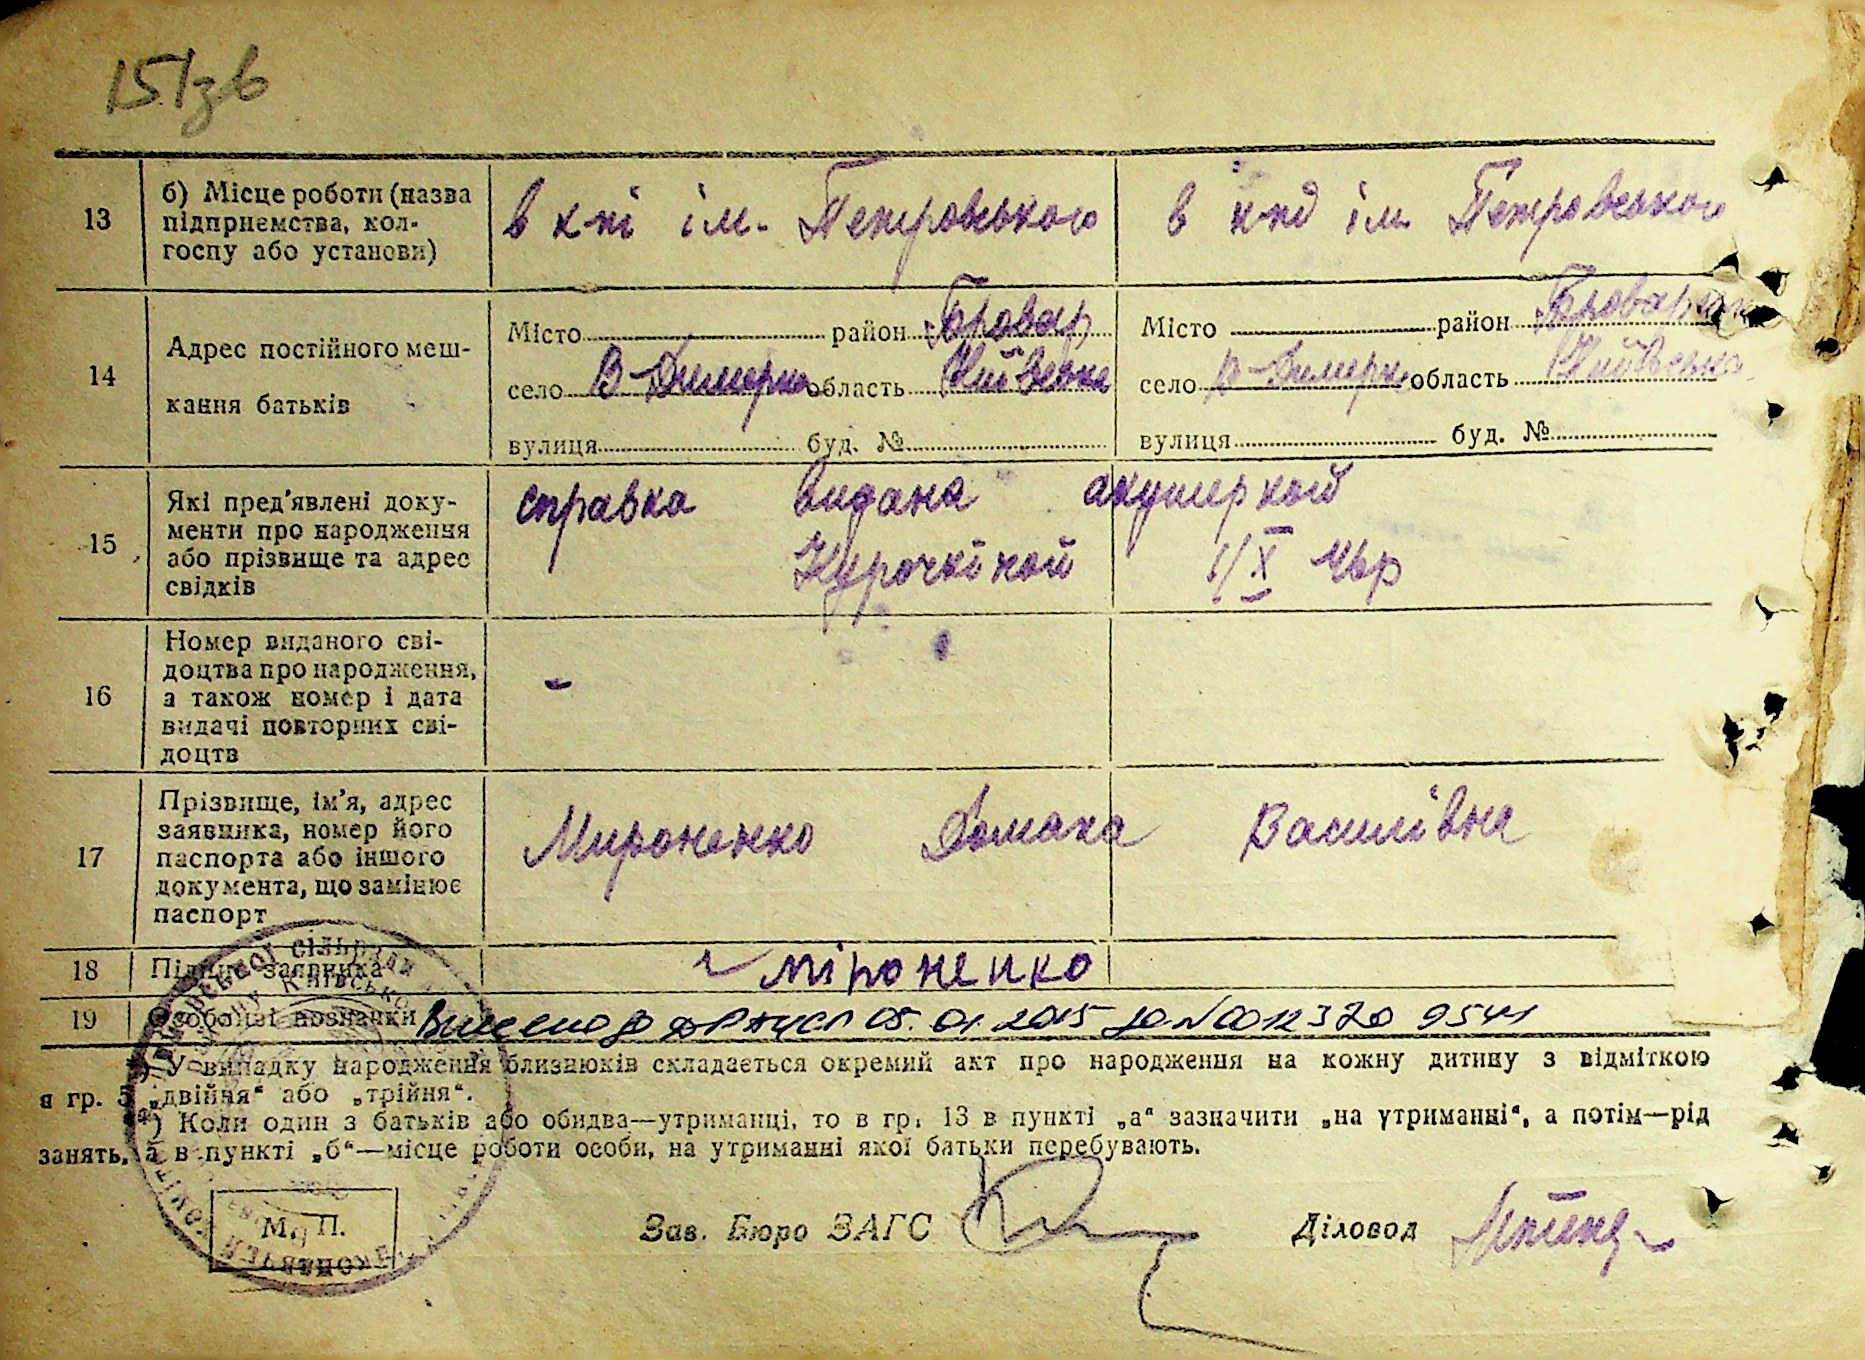 151зв
13 б) Місце роботи (назва
підприємства, кол-
госпу або установи)
в к-пі ім. Петровського
в к-пі ім. Петровського
14 Адрес постійного меш-
кання батьків
Місто район Бровар
село В-Димерка область Київська
вулиця буд. №
Місто район Броварськ
село В-Димерка область Київська
вулиця буд. №
15 Які пред'явлені доку-
менти про народження
або прізвище та адрес
свідків
справка видана акушеркой
Курочкіной 1/X
16 Номер виданого сві-
доцтва про народження,
а також номер і дата
видачі повторних сві-
доцтв
-
17 Прізвище, ім'я, адрес
заявника, номер його
паспорта або іншого
документа, що замінює
паспорт
Мироненко Домаха Василівна
18 Підпис заявника
міроненко
19 Особливі позначки Внесено до ДРАЦСГ 05.01.2015 за №0012320 9541
*) У випадку народження близнюків складається окремий акт про народження на кожну дитину з відміткою
в гр. 5 „двійня“ або „трійня“.
*) Коли один з батьків або обидва—утриманці, то в гр. 13 в пункті „а“ зазначити „на утриманні“, а потім—рід
занять, а в пункті „б“—місце роботи особи, на утриманні якої батьки перебувають.
М. П.
Зав. Бюро ЗАГС
Діловод